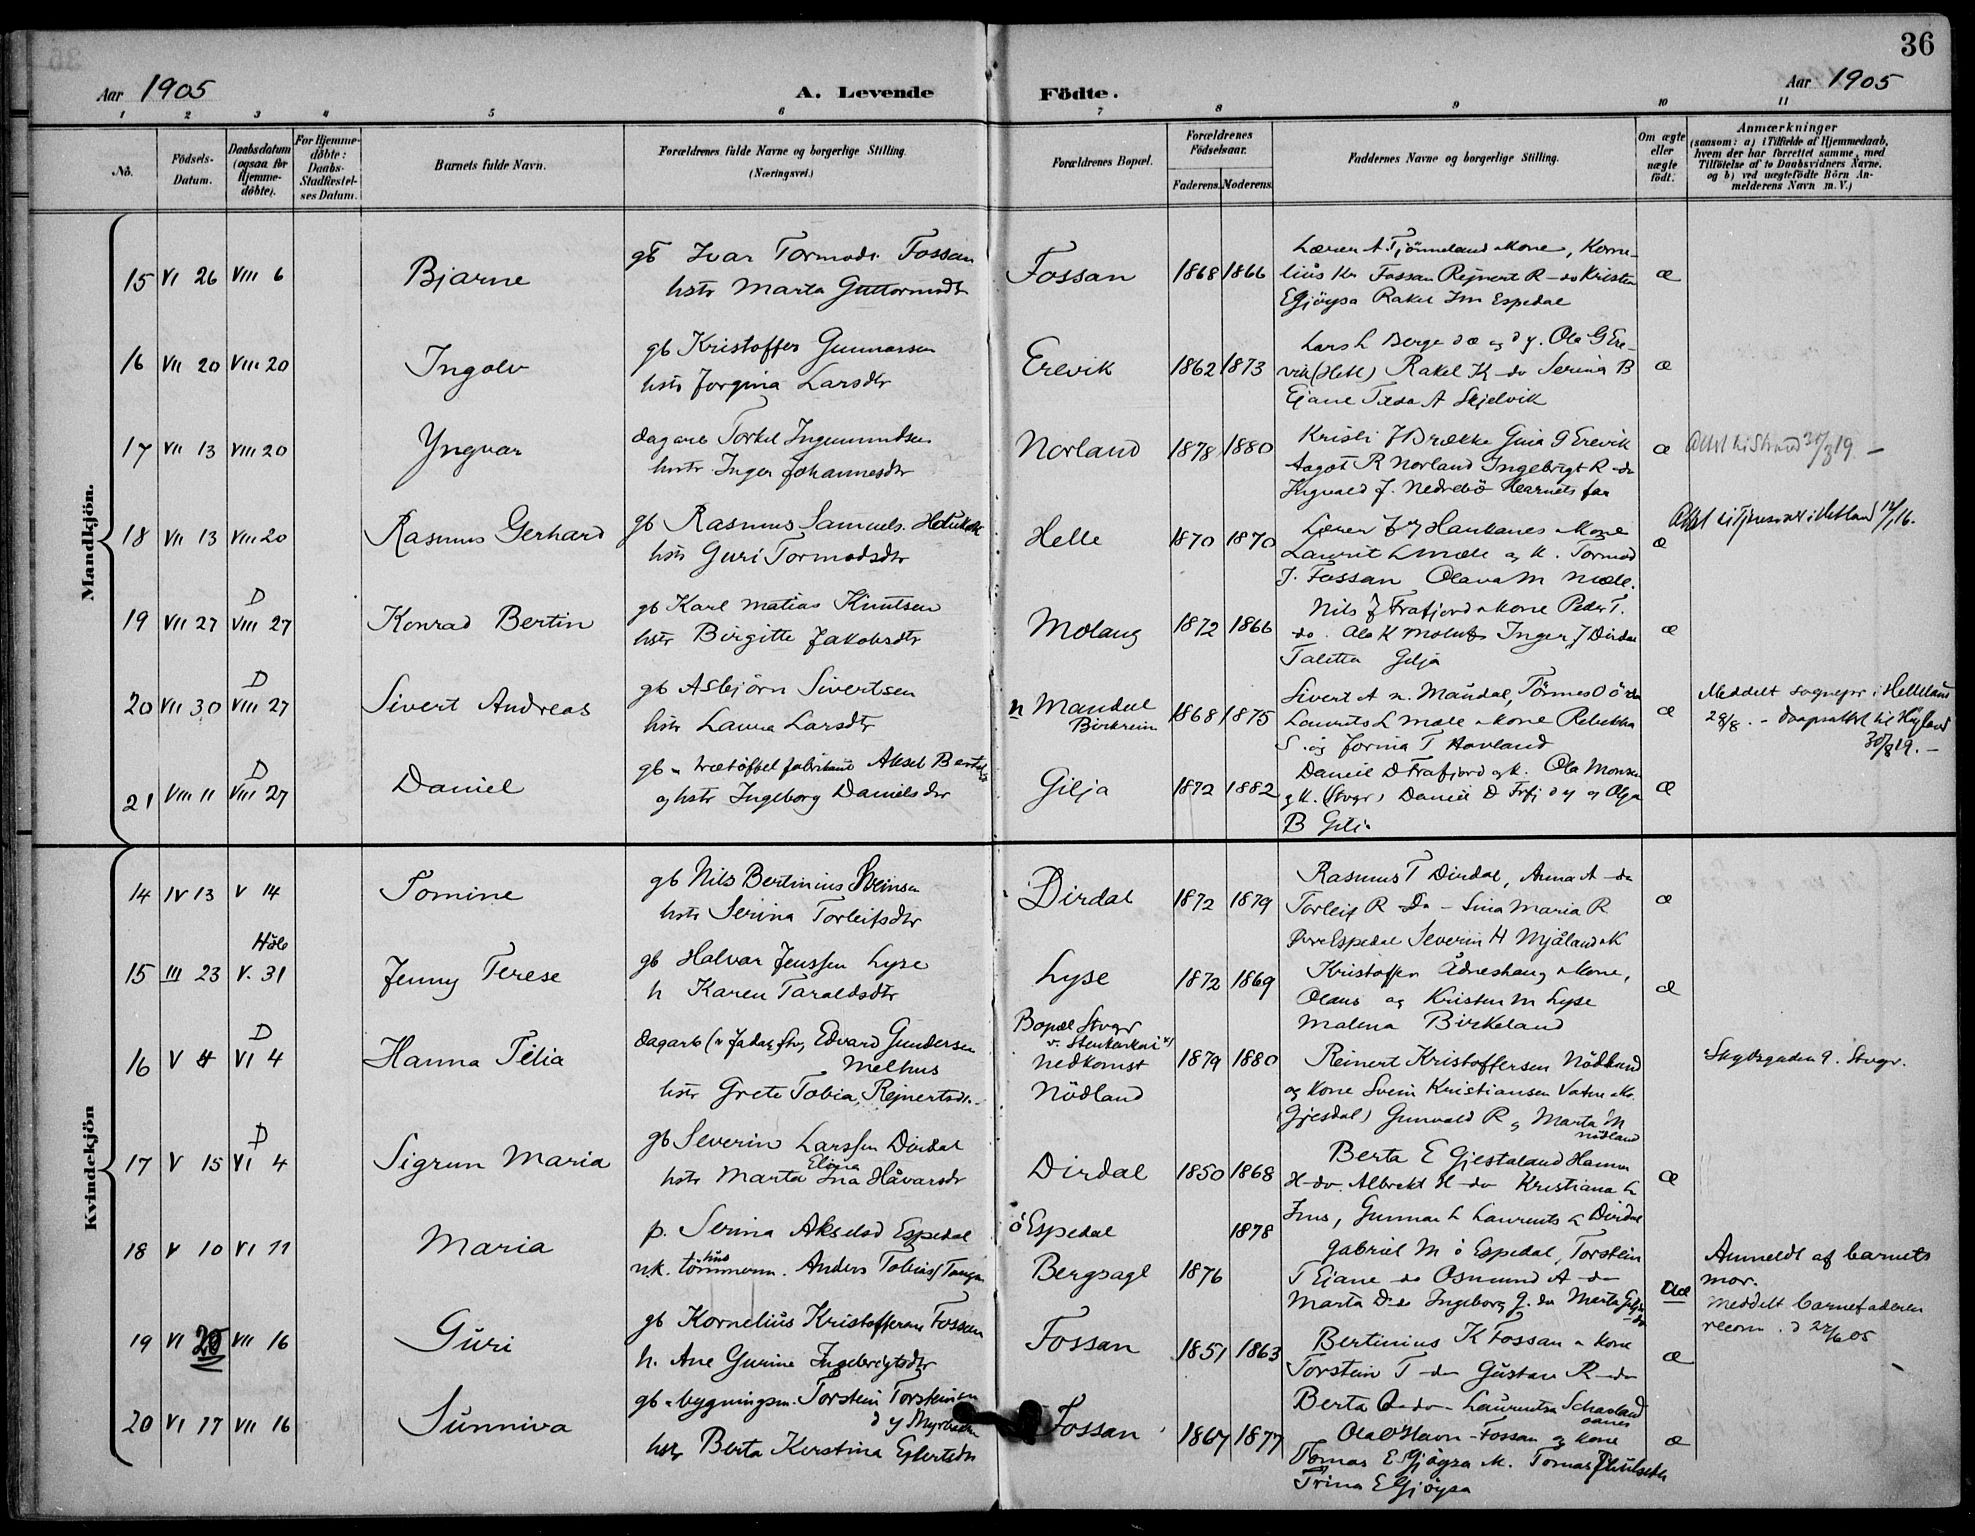 36
Aar 1905
A. Levende Födte.
Aar 1905
1 2 3 4 5 6 7 8 9 10 11
No.
Födsels-Datum.
Daabsdatum (ogsaa for Hjemme-döbte).
For Hjemme-döbte: Daabs-Stadfæstel-ses Datum.
Barnets fulde Navn.
Forældrenes fulde Navne og borgerlige Stilling.
(Næringsvei.)
Forældrenes Bopæl.
Forældrenes Födselsaar.
Faderens. Moderens.
Faddernes Navne og borgerlige Stilling.
Om ægte eller uægte födt.
Anmærkninger
(saasom: a) i Tilfælde af Hjemmedaab,
hvem der har forrettet samme, med
Tilföielse af to Daabsvidners Navne,
og b) ved uægtefödte Börn An-
melderens Navn m. V.)
Mandkjön.
15 VI 26 VIII 6 Bjarne
gb Ivar Tormods. Fossan
hstr Marta Guttormsdtr
Fossan 1868 1866
Lærer A. Tjörmeland & kone, Korne-
lius Kr Fossan Rejnert R - do Kristen
E Gjöysa Rakel Espedal
æ
16 VII 20 VIII 20 Ingolv
gb Kristoffer Gunnarsen
hstr Jorgina Larsdtr
Erevik 1862 1873
Lars L Berge d æ og d y. Ola G Ere-
vik (Helle) Rakel K - do Serina B
Ejane A Skjelvik
æ
17 VII 13 VIII 20 Yngvar
dagarb Torkel Ingemundsen
hustr Inger Johannesdtr
Norland 1878 1880
Kristi J Brække Gina G Erevik
Aagot R Norland Ingebrigt R - do
Ingvald J. Nedrebö Barnets far
æ
Attst til Strand 31/3 19. -
18 VII 13 VIII 20 Rasmus Gerhard
gb Rasmus Samuels.
hstr Guri Tormodsdtr
Helle 1870 1870
Lærer Haukanes & kone
Laurit L Mæle og k. Tormod
J. Fossan Olava M Mæle.
æ
19 VII 27 D VIII 27 Konrad Bertin
gb Karl Matias Knutsen
hstr Birgitte Jakobsdtr
Molaug 1872 1866
Nils J Frafjord & kone Peder T.
do. Ola K Inger J Dirdal
Taletta Gilja
æ
20 VII 30 D VIII 27 Sivert Andreas
gb Asbjörn Sivertsen
hstr Laura Larsdtr
n Maudal
Birkreim
1868 1875
Sivert A n. Maudal, Törnes O ö
Laurits L Mæle & kone Rebekka
S. og Jorina T Hovland
æ
Meddelt sognepr i Helleland
28/8. - daapsattst til Höyland
30/8 19. -
21 VIII 11 D VIII 27 Daniel
gb & trætöffel fabrikant Aksel
og hstr Ingeborg Danielsdtr
Gilja 1872 1882
Daniel D Frafjord og k. Ola Monsen
og k. (Stvgr) Daniel D Frfj d y og Olga
B Gilja
æ
Kvindekjön
14 IV 13 V 14 Tomine
gb Nils Bertinius Sveinsen
hstr Serina Torleifsdtr
Dirdal 1872 1879
Rasmus T Dirdal, Anna A - do
Torleif R - Do - Sina Maria R
Espedal Severin H Mjåland & K
æ
15 III 23 Höle V. 31 Jenny Terese
gb Halvar Jenssen Lyse
h Karen Taraldsdtr
Lyse 1872 1869
Kristoffer Ådneshaug & kone,
Olaus og Kristen M Lyse
Malena Birkeland
æ
16 V 4 D VI 4 Hanna Tilia
dagarb Edvard Gundersen
Melhus
hstr Grete Tobia Rejnertsdr.
Bopæl Stvgr
v. Stenkarkai
nedkomst
Nödland
1879 1880
Reinert Kristoffersen Nödland
og kone Svein Kristiansen Vatne & k.
(Gjesdal) Gunvald R og Marta M
Nödland
9. Stvgr.
17 V 15 D VI 4 Sigrun Maria
gb Severin Larssen Dirdal
hstr Marta Elina Ina Håvarsdr
Dirdal 1850 1868
Berta E Gjestaland Hanna
H - do. Albrekt H - do Kristiana L
Ims, Gunnar L Laurents L Dirdal
æ
18 V 10 VI 11 Maria
p. Serina Akselsd Espedal
u.k. hus tömmerm. Anders Tobias Taugen
ö Espedal 1878
Bergsagl 1876
Gabriel M ö Espedal, Torstein
T Ejane do Osmund A - do
Marta D - do Ingeborg G. do Marta
Uæ
Anmeldt af barnets
mor.
meddelt barnefaderen
recom. d 22/6 05
19 VI 25 VII 16 Guri
gb Kornelius Kristoffersen Fossan
h. Ane Gurine Ingebrigtsdtr
Fossan 1851 1863
Bertinius K Fossan & kone
Torstein T - do Gustav R - do
Berta O - do - Laurentsa Schavland
oanes
æ
20 VI 17 VII 16 Sunniva
gb & bygningsm. Torstein Torsteinsen
d y
hstr Berta Kerstina Ejlertsdtr
Fossan 1867 1877
Ola O Havn - Fossan og kone
Tomas E Gjöysa M. Tomas
Trina E Gjöysa
æ